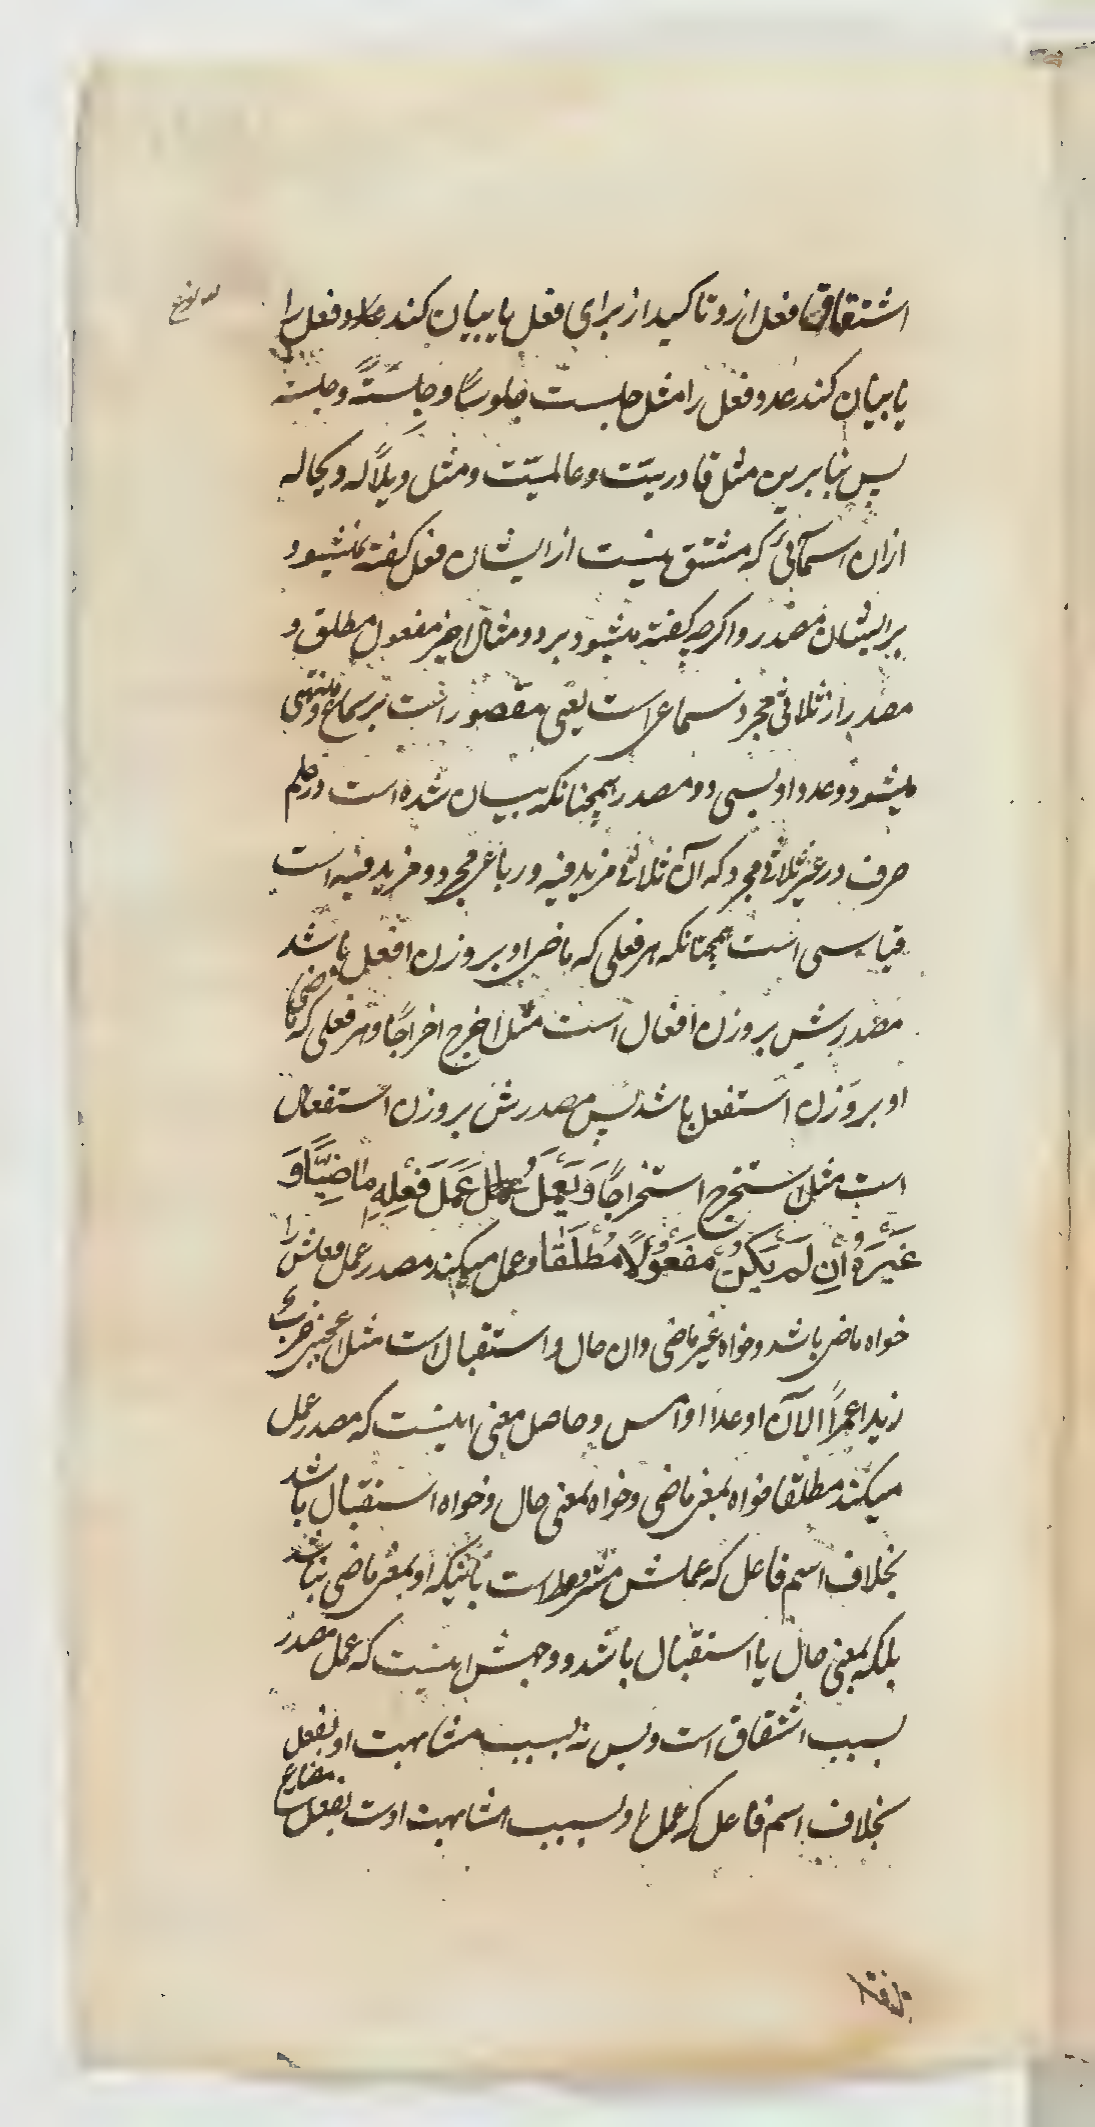 اشتقاق فعل ازو تاکید از برای فعل یا بیان کند عدد فعل را
یا بیان کند عدد فعل را مثل جلست جلوسًا و جِلسَتًا و جلسته
پس بنابرین مثل قادریّت و عالمیّت و مثل ویلًا له ویحا له
ازان اسمآئی که مشتق نیست از ایشان فعل گفته نمیشود
بر ایشان مصدر و اگرچه گفته میشود بر دو مثال اخیر مفعول مطلق و
مصدر از ثلاثی مجرد سماعی است یعنی مقصور است بر سماع و منتهی
میشود عدد او بسی و دو مصدر همچنانکه بیان شده است در علم
صرف و در غیر ثلاثی مجرد که آن ثلاثی مزید فیه و رباعی مجرد و مزید فیه است
قیاسی است همچنانکه هر فعلی که ماضی او بر وزن افعل باشد
مصدرش بر وزن افعال است مثل اخرج اخراجًا و هر فعلی که ماضی
او بر وزن استفعل باشد پس مصدرش بر وزن استفعال
است مثل استخرج استخراجًا وَ یَعْمَلُ عَمَلَ فَعْلِهِ ماضِیًّا وَ
غَیْرَهُ اِنْ لَمْ یَکُنْ مَفْعُوْلًا مُطْلَقًا و عمل میکند مصدر عمل فعلش را
خواه ماضی باشد و خواه غیر ماضی و ان حال و استقبال است مثل اعجبنی ضربُ
زید عمرًا الآن او غدا او امس و حاصل معنی اینست که مصدر عمل
میکند مطلقا خواه بمعنی ماضی و خواه بمعنی حال و خواه استقبال باشد
بخلاف اسم فاعل که عملش مشروط است باینکه او بمعنی ماضی نباشد
بلکه بمعنی حال یا استقبال باشد و وجهش اینست که عمل مصدر
بسبب اشتقاق است و بس نه بسبب مشابهت او بفعل
بخلاف اسم فاعل که عمل او بسبب مشابهت اوست بفعل مضارع